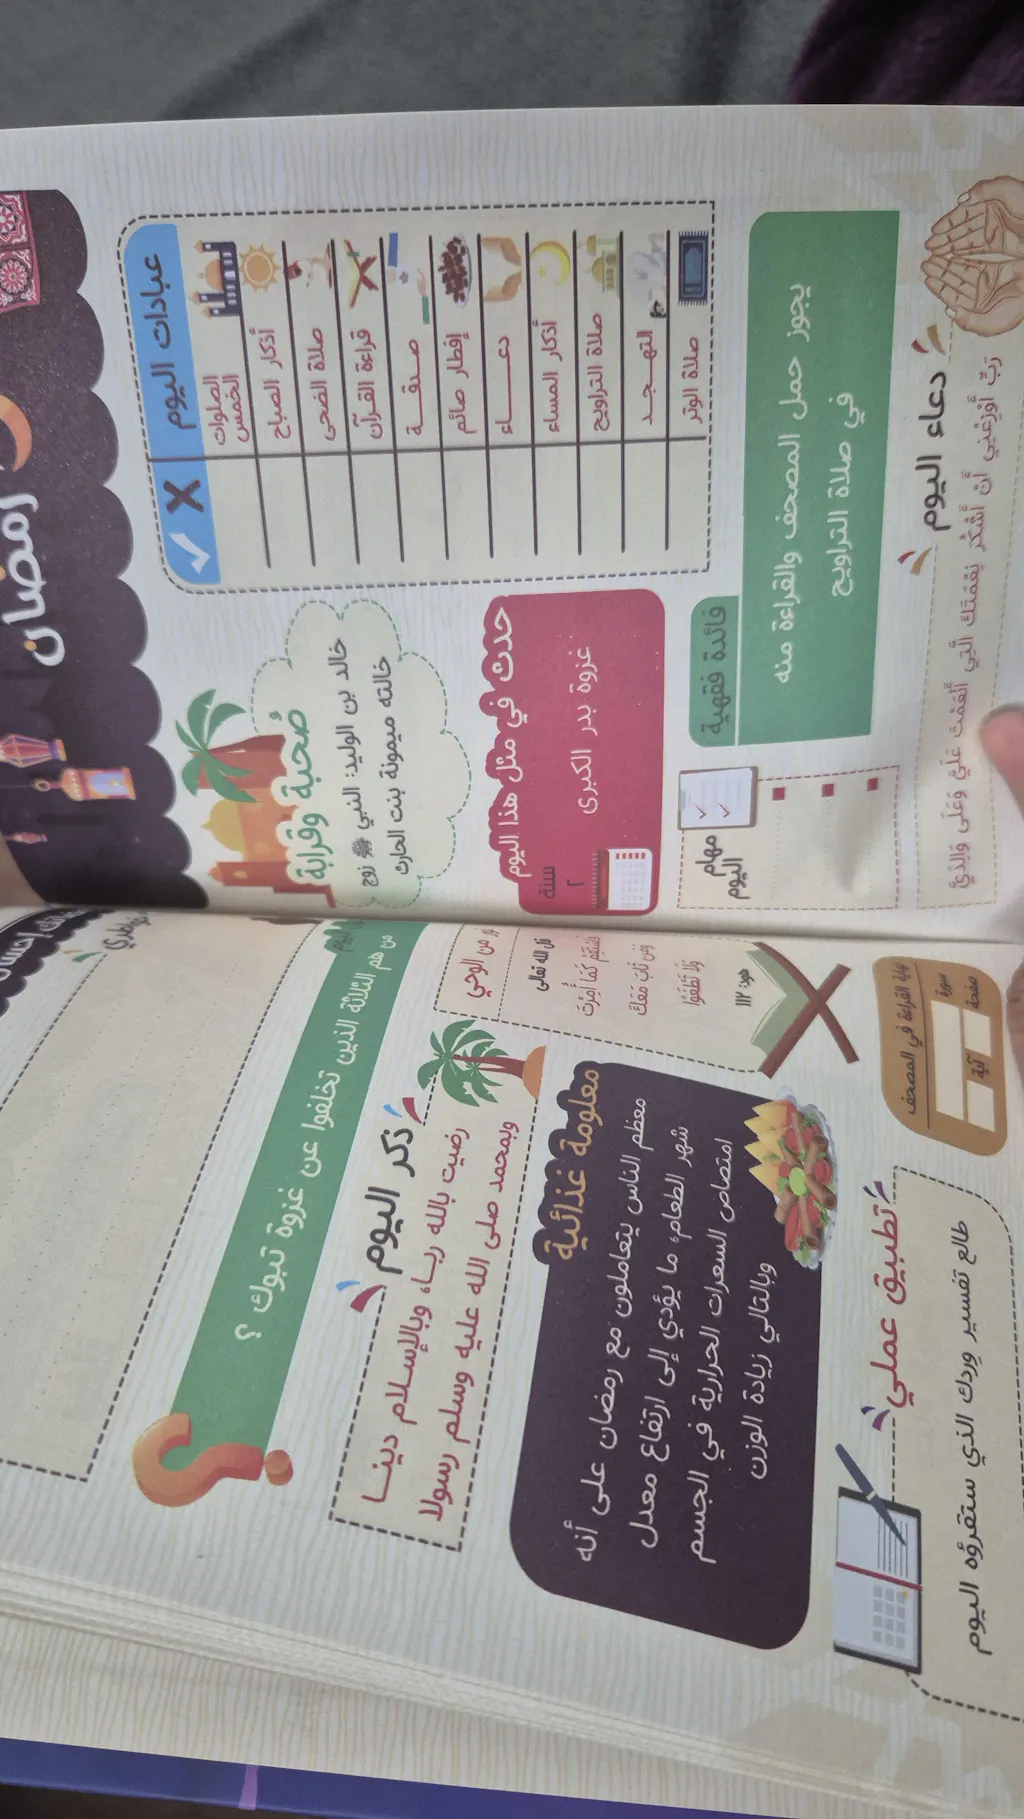 رمضان
عبادات اليوم
الصلوات
الخمس
أذكار الصباح
صلاة الضحى
قراءة القرآن
صدقـــــة
إفطار صائم
دعـــــاء
أذكار المساء
صلاة التراويح
التهـجـد
صلاة الوتر
صُحبة وقرابة
خالد بن الوليد: النبي ﷺ زوج
خالته ميمونة بنت الحارث
حدث في مثل هذا اليوم
سنة
٢
غزوة بدر الكبرى
فائدة فقهية
يجوز حمل المصحف والقراءة منه
في صلاة التراويح
مهام
اليوم
دعاء اليوم
رَبِّ أَوْزِعْنِي أَنْ أَشْكُرَ نِعْمَتَكَ الَّتِي أَنْعَمْتَ عَلَيَّ وَعَلَى وَالِدَيَّ
من هم الثلاثة الذين تخلفوا عن غزوة تبوك ؟
نور من الوحي
قال الله تعالى
فَاسْتَقِمْ كَمَا أُمِرْتَ
وَمَن تَابَ مَعَكَ
وَلَا تَطْغَوْا
هود: ١١٢
ذكر اليوم
رضيت بالله ربـــا، وبالإســلام دينــا
وبمحمد صلى الله عليه وسلم رسولا
معلومة غذائية
معظم الناس يتعاملون مع رمضان على أنه
شهر الطعام، ما يؤدي إلى ارتفاع معدل
امتصاص السعرات الحرارية في الجسم
وبالتالي زيادة الوزن
نهاية القراءة في المصحف
سورة
آية
صفحة
تطبيق عملي
طالع تفسير وردك الذي ستقرؤه اليوم